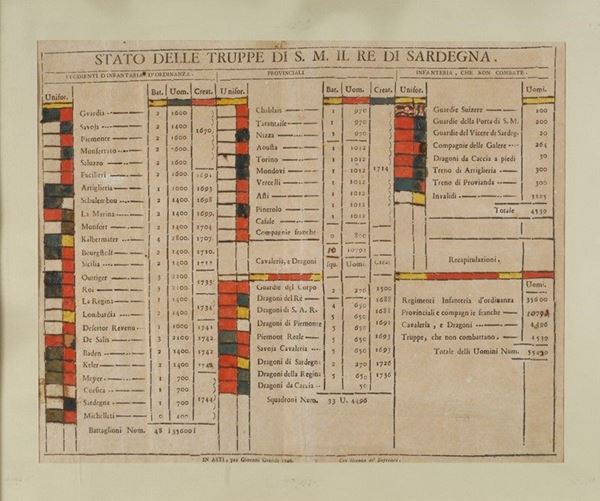 STATO DELLE TRUPPE DI S. M. IL RE DI SARDEGNA.
REGGIMENTI D'INFANTERIA D'ORDINANZA.
Unifor. Bat. Uom. Creat.
Guardia 2 1600
Savoja 2 1400
Piemonte 2 1600
1670
Monferrato 2 1600
Saluzzo 2 1600
Fucilieri 2 1600 1691
Artiglieria 1 1000 1693
Schulembou 2 1400. 1698
La Marina 2 1400 1699.
Monfort 2 1400 1704
Kalbermater 4 2800. 1707
Bourgstoff 2 1400. 1710.
Sicilia 2 1400 1712
Outtiger 3 2100
Roi 3 2100
1733
La Regina 2 1400
Lombardia 2 1400
1734
Desertor Revenu 1 1000 1741
De Salis 3 2100 1742
Baden 2 1400. 1742
Keler 2 1400 1742
Meyer 1 700.
Corsica 1 700.
Sardegna 1 700
1744
Michelleti 0 100
Battaglioni Num. 48 35600
PROVINCIALI
Unifor. Bat. Uom. Creat.
Chablais 1 970
Tarantaise 1 970
Nizza 1 970
Aousta 1 1012
Torino 1 1012
Mondovì 1 1012
1714
Vercelli 1 1012
Asti 1 1012
Pinerolo 1 1012
Casale 1 1012
Compagnie franche 0 800
10 10792
Cavaleria, e Dragoni
Squ. Uom. Creat.
Guardie del Corpo 2 276 1500
Dragoni del Rè 4 650 1688
Dragoni di S. A. R. 5 650 1681
Dragoni di Piemonte 5 650 1691
Piemont Reale 5 650 1693
Savoja Cavaleria 5 650 1693
Dragoni di Sardegna 2 270 1726
Dragoni della Regina 5 650 1736
Dragoni da Caccia 50
Squadroni Num. 33 U. 4496
INFANTERIA, CHE NON COMBATE.
Unifor. Uomi.
Guardie Suizere 100
Guardie della Porta di S. M. 200
Guardie del Vicere di Sardeg. 20
Compagnie delle Galere 264
Dragoni da Caccia a piedi 30
Treno di Artiglieria 300
Treno di Provianda 300
Invalidi 3125
Totale 4539
Recapitulazioni.
Uomi.
Regimenti Infanteria d'ordinanza 35600
Provinciali e compagnie franche 10792
Cavaleria, e Dragoni 4496
Truppe, che non combattano 4539
Totale delli Uomini Num. 55430
IN ASTI, per Giovani Con licenza de' Superiori.